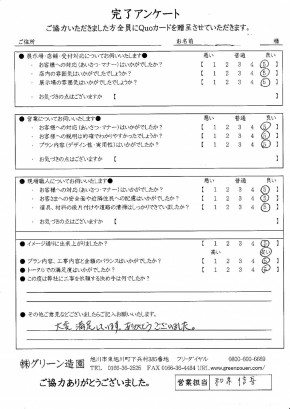 完了アンケート
ご協力いただきました方全員にQuoカードを贈呈させていただきます。
ご住所 お名前 様
●展示場・店舗・受付対応についてお伺いいたします● 悪い 普通 良い
・お客様への対応(あいさつ・マナー)はいかがでしたか? 【 1 2 3 4 5 】
・店内の雰囲気はいかがでしたか? 【 1 2 3 4 5 】
・展示場の雰囲気はいかがでしたか? 【 1 2 3 4 5 】
・お気づきの点はございますか
●営業についてお伺いいたします● 悪い 普通 良い
・お客様への対応(あいさつ・マナー)はいかがでしたか? 【 1 2 3 4 5 】
・お客様への説明は的確でわかりやすかったでしょうか? 【 1 2 3 4 5 】
・プラン内容(デザイン性・実用性)はいかがですか? 【 1 2 3 4 5 】
・お気づきの点はございますか
●現場職人についてお伺いいたします● 悪い 普通 良い
・お客様への対応(あいさつ・マナー)はいかがでしたか? 【 1 2 3 4 5 】
・お客さまへの安全面や近隣住民への配慮はいかがでしたか? 【 1 2 3 4 5 】
・道具、材料の後片付けや道路の清掃はしっかりできていましたか? 【 1 2 3 4 5 】
・お気づきの点はございますか
●イメージ通りに出来上がりましたか? 【 1 2 3 4 5 】
高い 良い
●プラン内容、工事内容と金額のバランスはいかがですか? 【 1 2 3 4 5 】
●トータルでの満足度はいかがですか? 【 1 2 3 4 5 】
●この度は弊社に工事を依頼する決め手は何でしたか?
●その他ご意見などございましたらご記入お願いいたします。
大変 満足しています。ありがとうございました。
㈱グリーン造園 旭川市東旭川町下兵村383番地 フリーダイヤル 0800-600-6669
TEL 0166-36-2525 FAX 0166-36-4484 URL www.greenzouen.com/
ご協力ありがとうございました。 営業担当